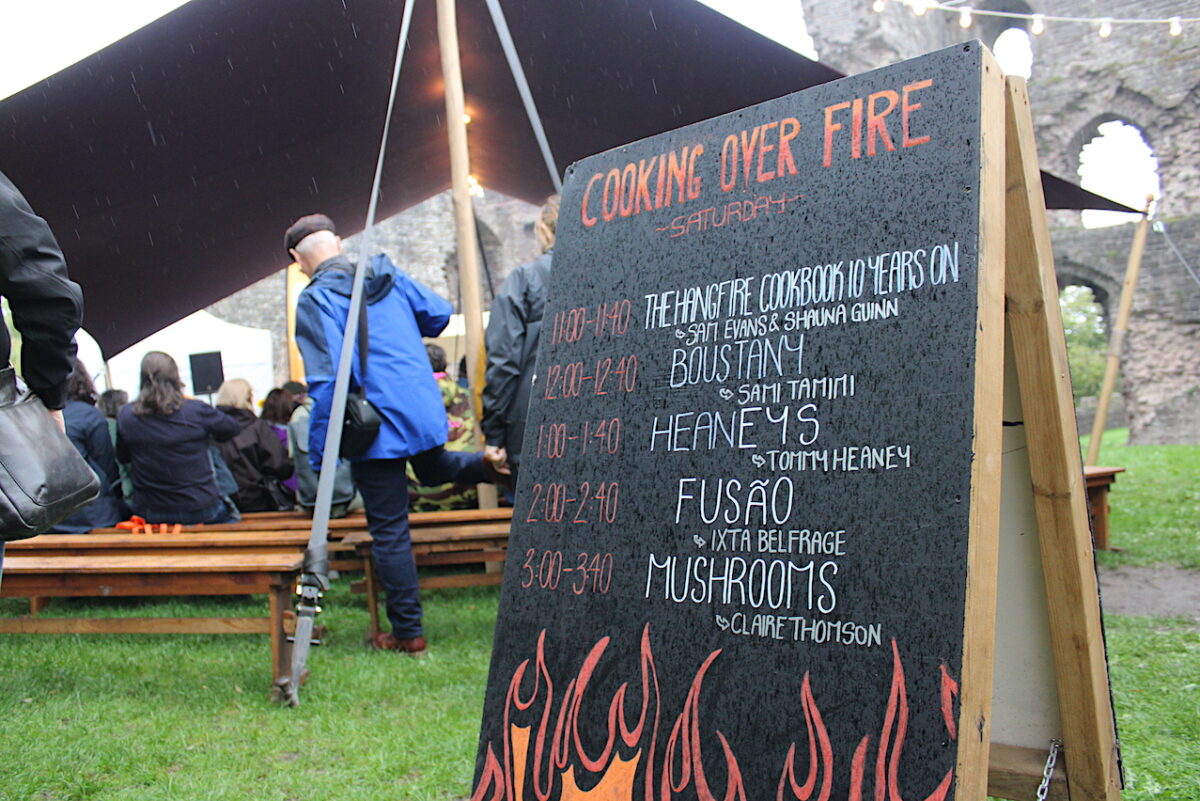 COOKING OVER FIRE
~SATURDAY~
11:00-11:40 THE HANGFIRE COOKBOOK 10 YEARS ON
SAM EVANS & SHAUNA GUINN
12:00-12:40 BOUSTANY
SAMI TAMIMI
1:00-1:40 HEANEYS
TOMMY HEANEY
2:00-2:40 FUSÃO
IXTA BELFRAGE
3:00-3:40 MUSHROOMS
CLAIRE THOMSON